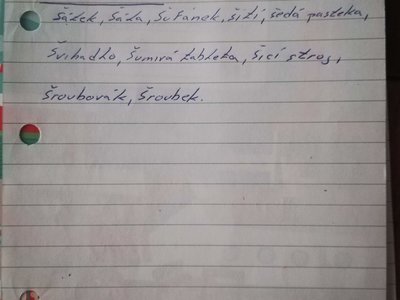 Šálek, Šála, Šuřánek, šití, šedá pastelka,
Švihadlo, Šumivá tableta, šicí stroj,
Šroubovák, Šroubek.